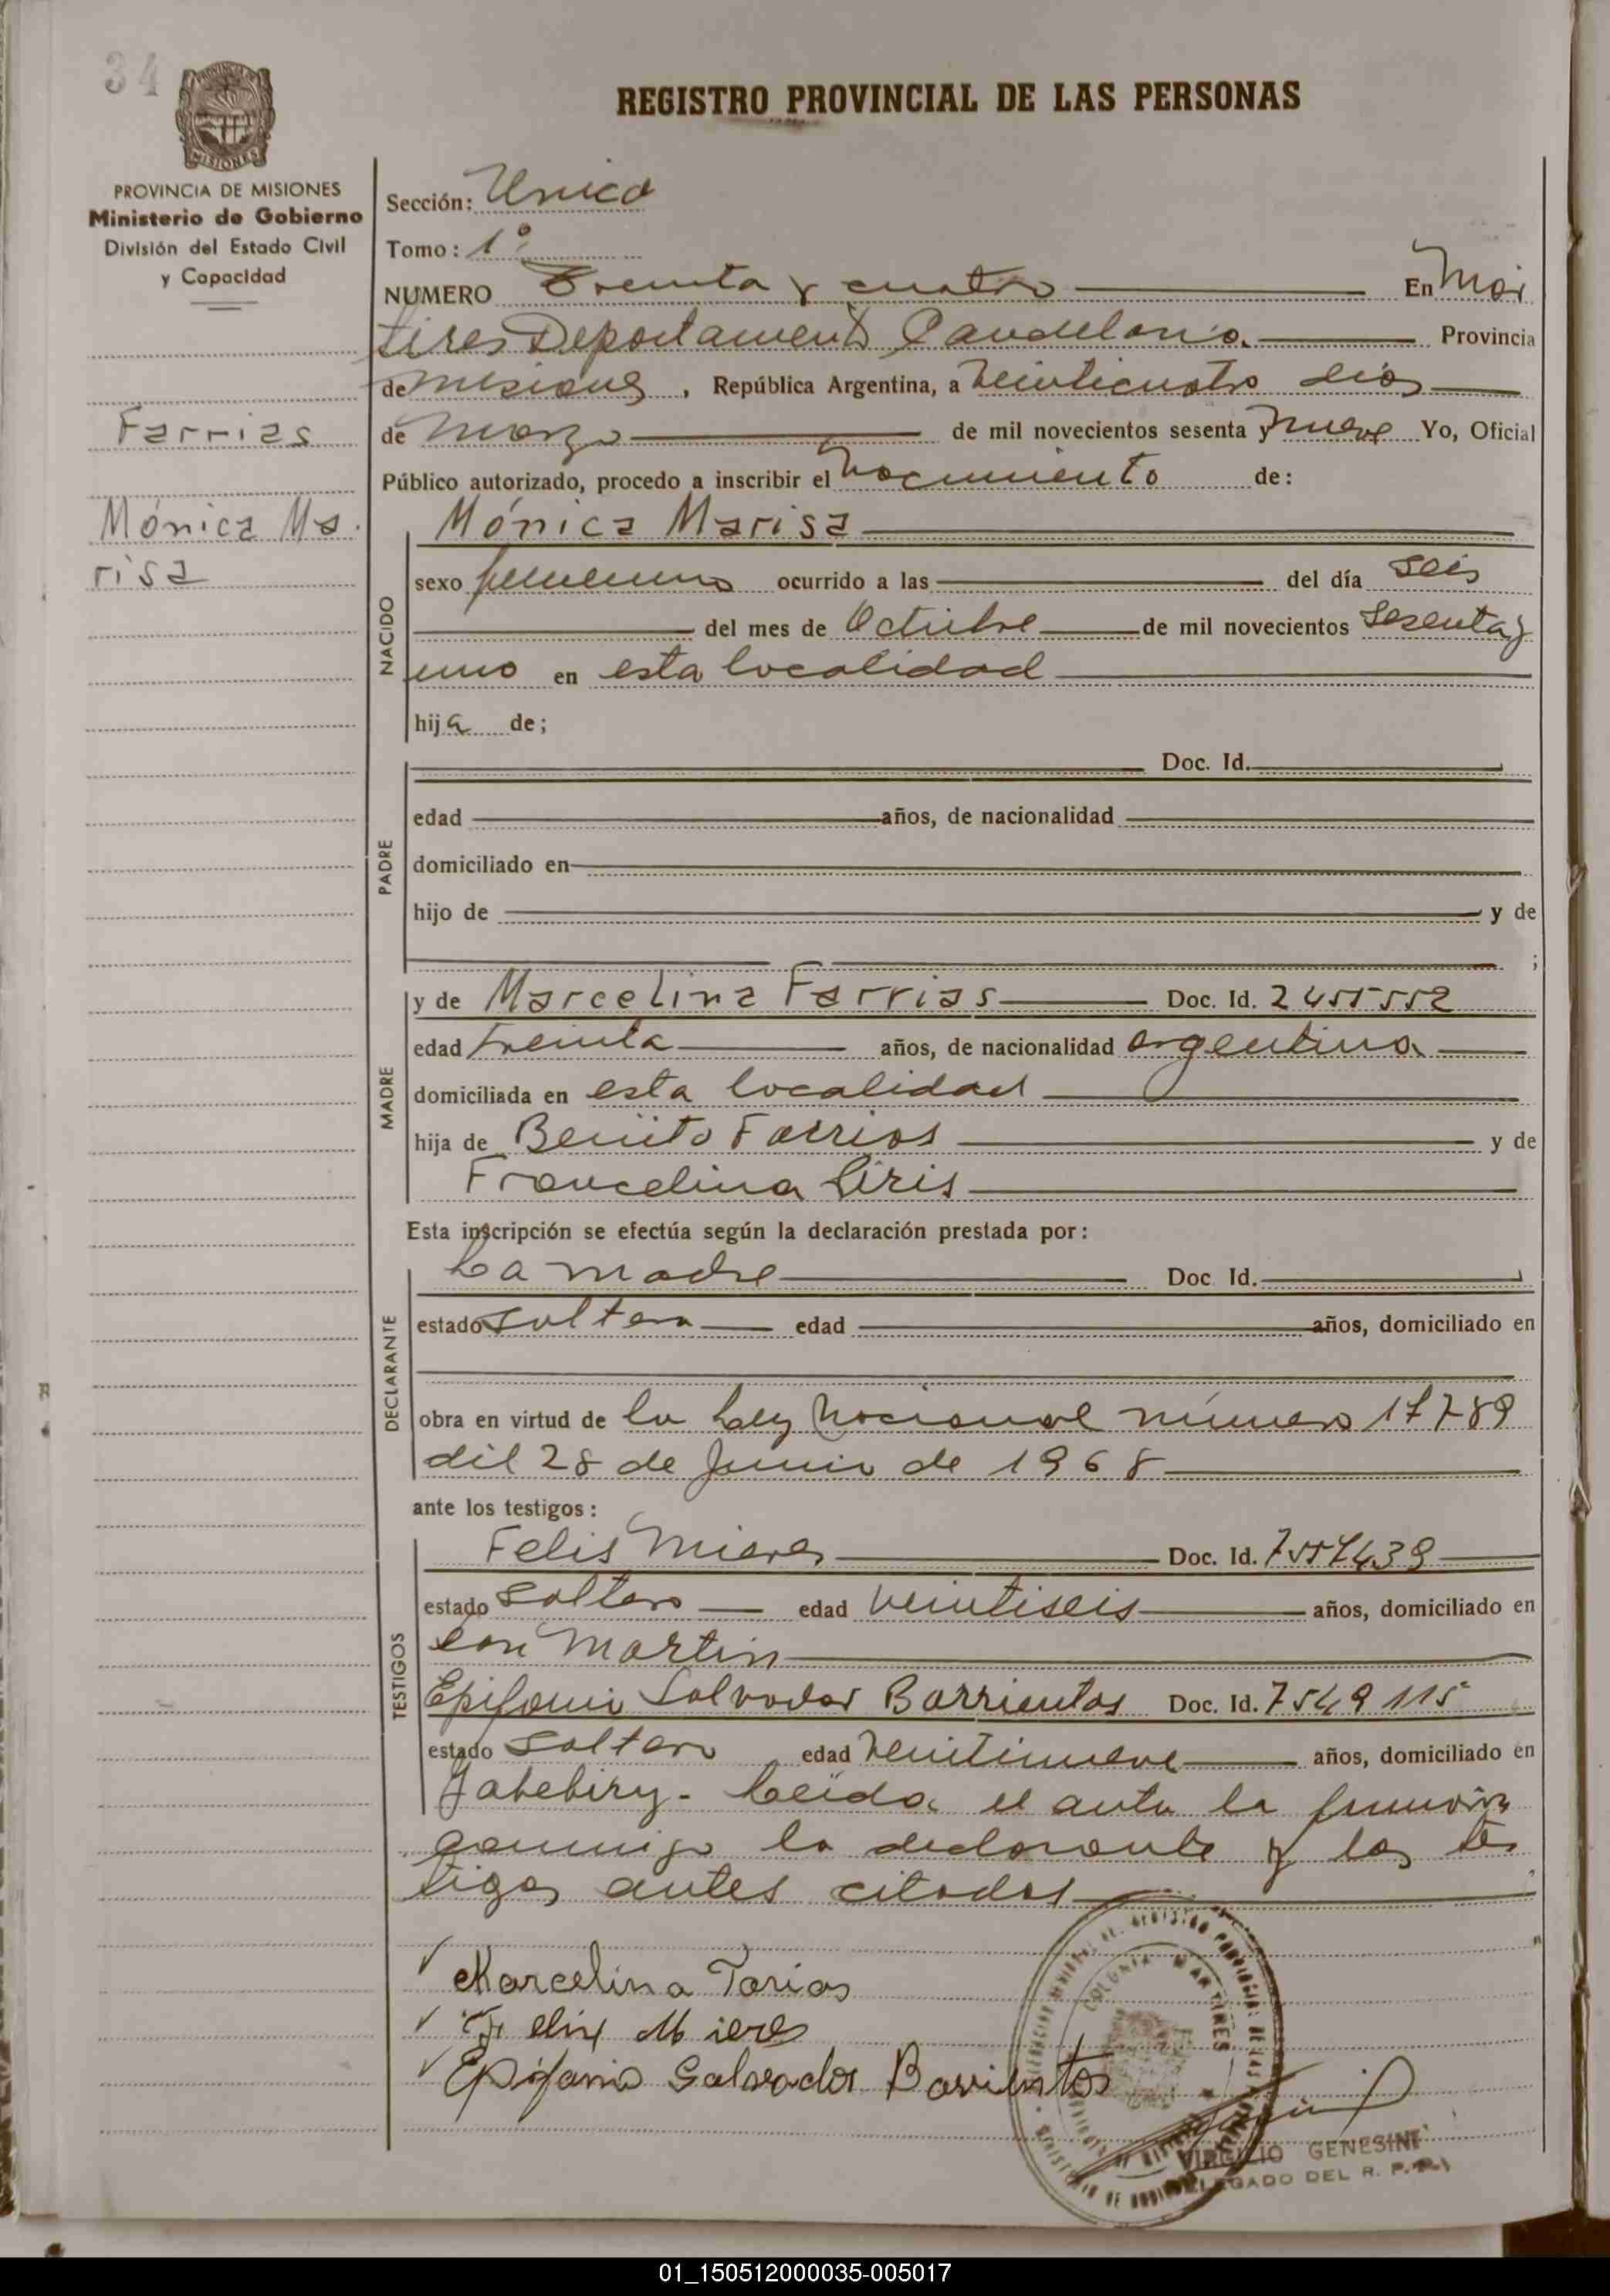 34
PROVINCIA DE MISIONES
Ministerio de Gobierno
División del Estado Civil
y Capacidad
REGISTRO PROVINCIAL DE LAS PERSONAS
Sección: Unica
Tomo: 1º
NUMERO Treinta y cuatro En Mar
tires Departamento Candelaria. Provincia
de misiones, República Argentina, a veinticuatro dias
Farrias
de Marzo de mil novecientos sesenta y nueve Yo, Oficial
Público autorizado, procedo a inscribir el Nacimiento de:
Mónica Ma.
risa
NACIDO
Mónica Marisa
sexo femenino ocurrido a las del día seis
del mes de Octubre de mil novecientos sesenta y
uno en esta localidad
hija de;
PADRE
Doc. Id.
edad años, de nacionalidad
domiciliado en
hijo de y de
;
MADRE
y de Marcelina Farrias Doc. Id. 2455552
edad treinta años, de nacionalidad argentina
domiciliada en esta localidad
hija de Benito Farrias y de
Francelina Siris
Esta inscripción se efectúa según la declaración prestada por:
DECLARANTE
La madre Doc. Id.
estado soltera edad años, domiciliado en
obra en virtud de la Ley Nacional número 17789
del 28 de Junio de 1968
ante los testigos:
TESTIGOS
Felis Mieres Doc. Id.
estado soltero edad veintiseis años, domiciliado en
San Martin
Epifanio Salvador Barrientos Doc. Id. 7549115
estado soltero edad veintinueve años, domiciliado en
Yabebiry. Leida el acta la firman
conmigo la declarante y los tes
tigos antes citados
Marcelina Farias
Felix Mieres
Epifanio Salvador Barrientos
COLONIA MARTIRES
VIRGILIO GENESINI
DELEGADO DEL R. P. P.
01_150512000035-005017